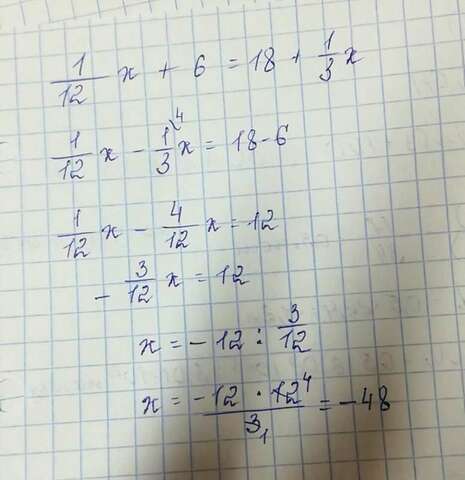 1/12 x + 6 = 18 + 1/3 x
1/12 x - 1/3 ⁴ x = 18 - 6
1/12 x - 4/12 x = 12
- 3/12 x = 12
x = - 12 : 3/12
x = -12 · 12 ⁴ / 3 ₁ = - 48